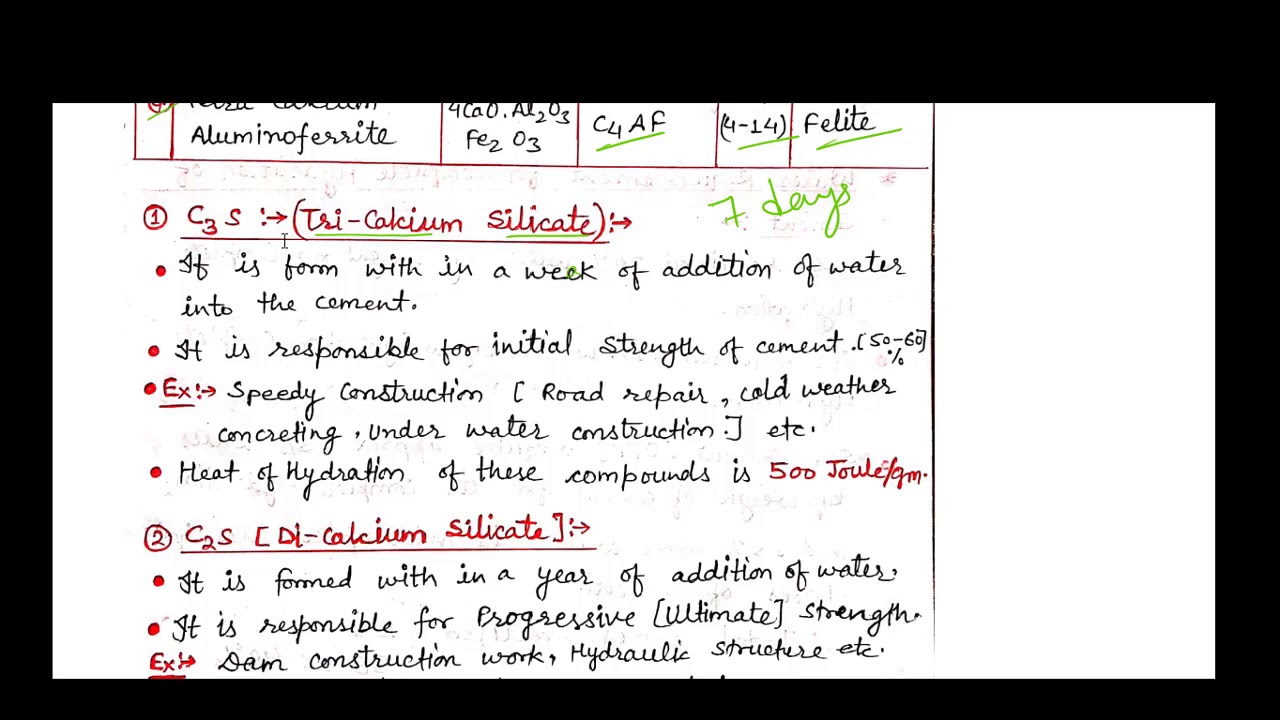 Tetra Calcium
Aluminoferrite
4CaO.Al2O3
Fe2O3
C4AF
(4-14)
Felite
7 days
① C3S :→ (Tri-Calcium Silicate) :→
• It is form with in a week of addition of water
into the cement.
• It is responsible for initial Strength of cement. [50-60]
%
• Ex:→ Speedy Construction [Road repair, cold weather
concreting, under water construction.] etc.
• Heat of Hydration of these compounds is 500 Joule/gm.
② C2S [Di-Calcium Silicate] :→
• It is formed with in a year of addition of water.
• It is responsible for Progressive [Ultimate] Strength.
Ex:→ Dam construction work, Hydraulic structure etc.